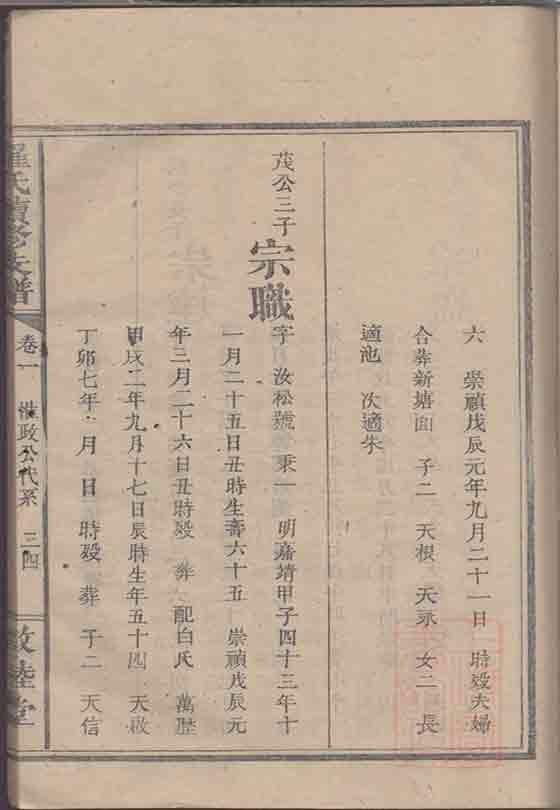 六 崇禎戊辰元年九月二十一日 時殁夫婦
合葬新塘面 子二 天根 天永 女二 長
適池 次適朱
茂公三子
宗職
字汝松號秉一 明嘉靖甲子四十三年十
一月二十五日丑時生壽六十五 崇禎戊辰元
年三月二十六日丑時殁 葬 配白氏 萬歷
甲戌二年九月十七日辰時生年五十四 天啟
丁卯七年 月 日 時殁 葬 子二 天信
羅氏續修支譜
卷一
政公代系
三四
敦睦堂